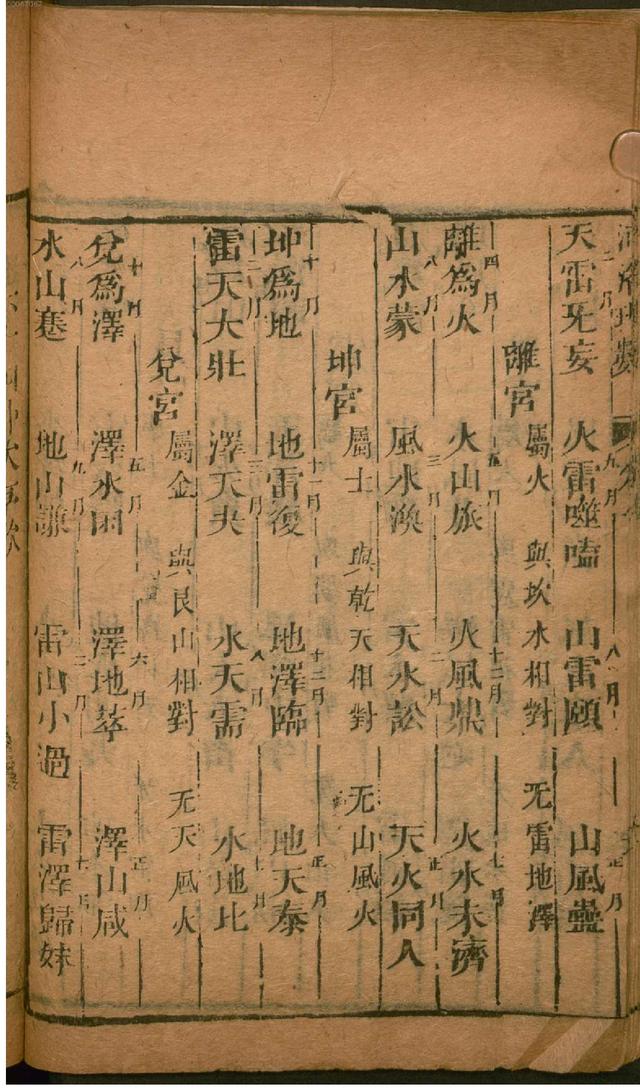 二月 九月 八月 正月
天雷无妄 火雷噬嗑 山雷頤 山風蠱
離宮 屬火 與坎水相對 无雷地澤
四月 五月 十二月 七月
離為火 火山旅 火風鼎 火水未濟
八月 三月 二月 正月
山水蒙 風水渙 天水訟 天火同人
坤宮 屬土 與乾天相對 无山風火
十月 十一月 十二月 正月
坤為地 地雷復 地澤臨 地天泰
二月 三月 八月 七月
雷天大壯 澤天夬 水天需 水地比
兌宮 屬金 與艮山相對 无天風火
十月 五月 六月 正月
兌為澤 澤水困 澤地萃 澤山咸
八月 九月 二月 七月
水山蹇 地山謙 雷山小過 雷澤歸妹